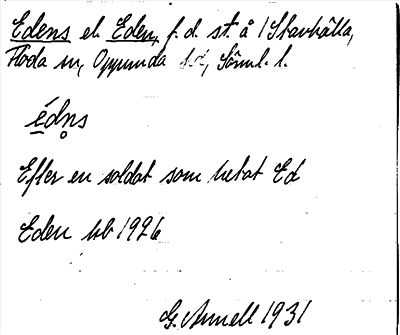 Edens el. Eden, f. d. st. å 1 Skavhälla,
Floda sn, Oppunda hd, Söml. l.
édn̥s
Efter en soldat som hetat Ed
Eden hb 1926
G. Annell 1931